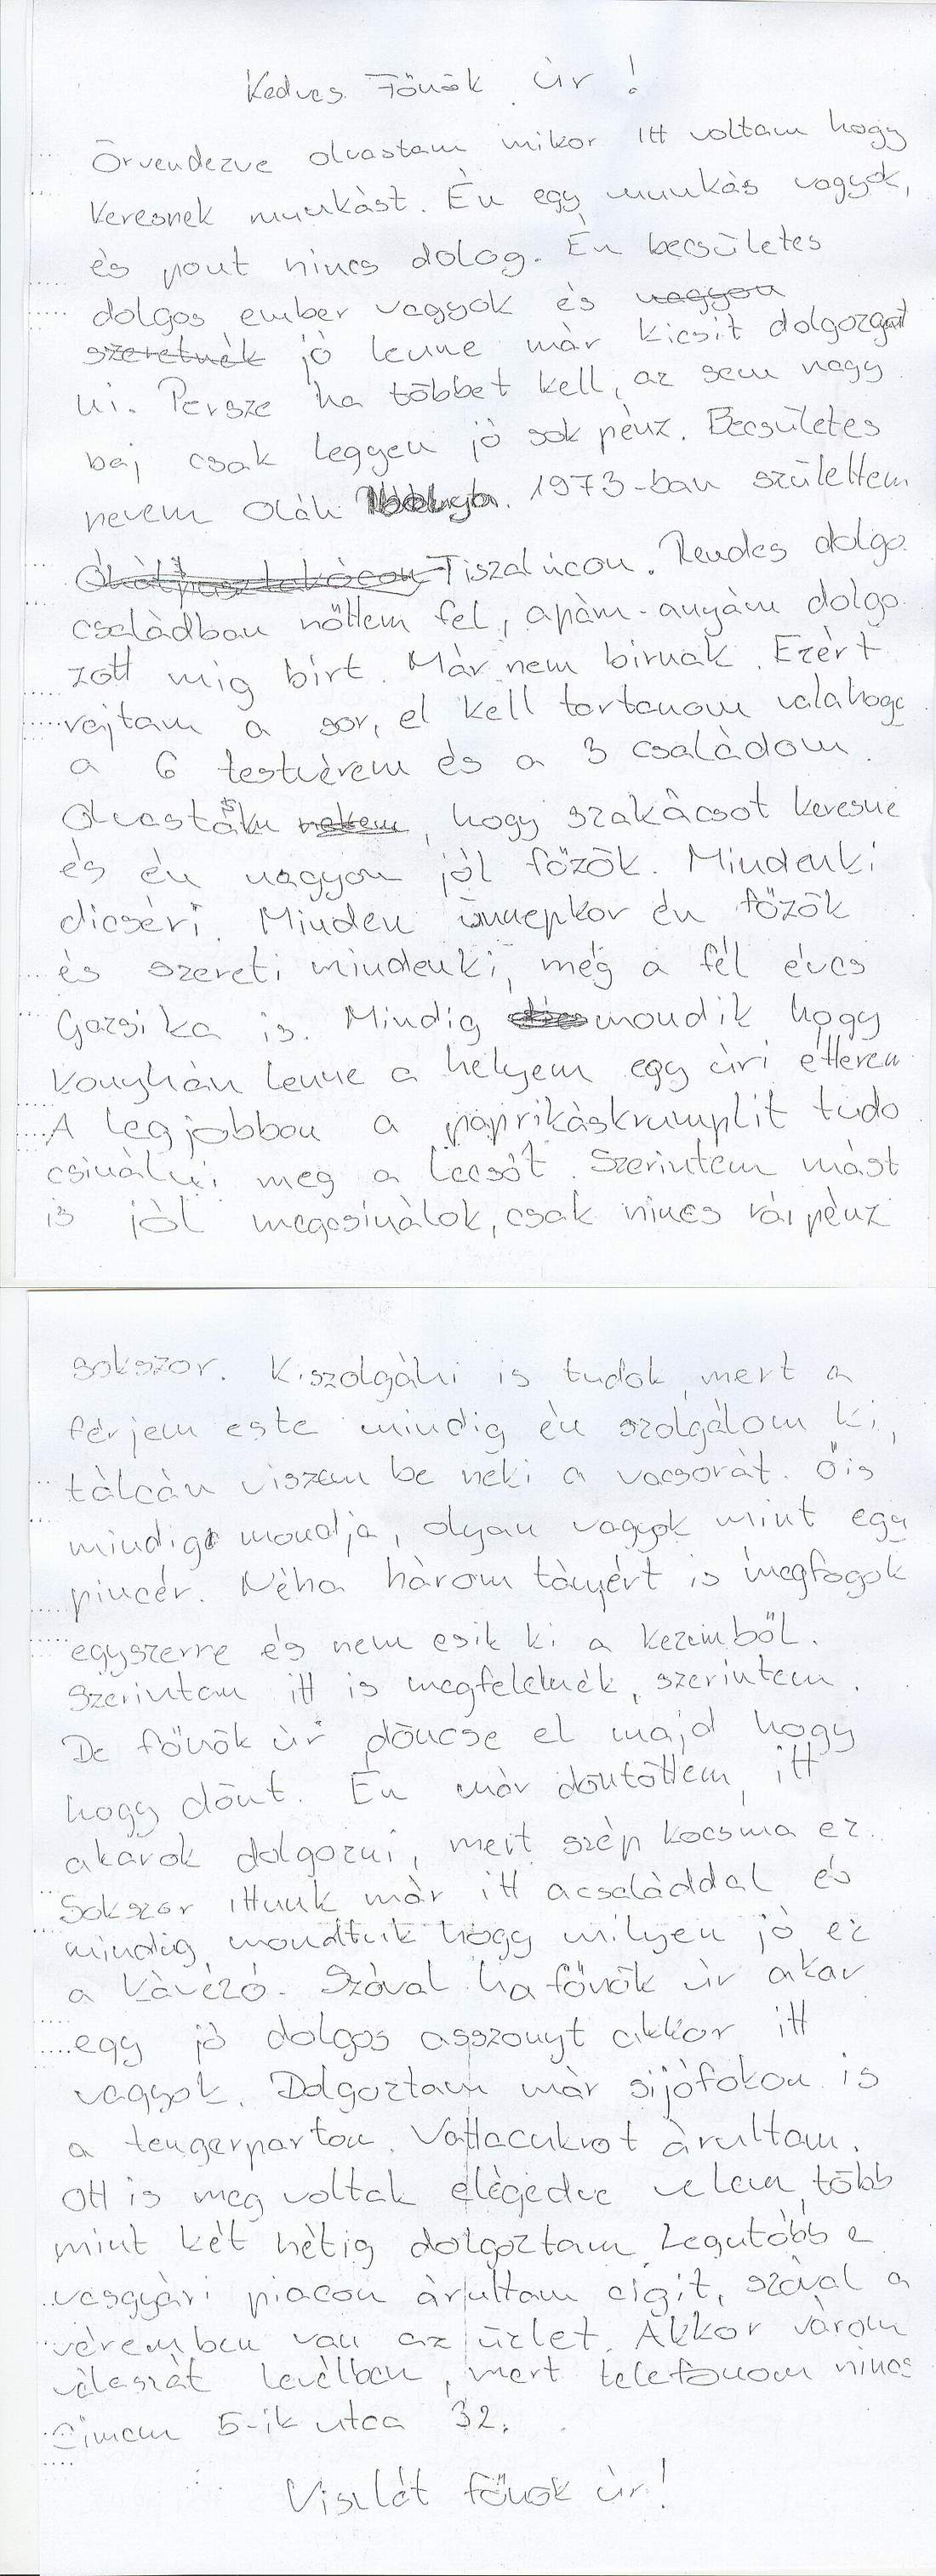 Kedves Főnök úr!
Örvendezve olvastam mikor itt voltam hogy
keresnek munkást. Én egy munkás vagyok,
és pont nincs dolog. Én becsületes
dolgos ember vagyok és nagyon
szeretnék jó lenne már kicsit dolgozgat
ni. Persze ha többet kell, az sem nagy
baj csak leggyen jó sok pénz. Becsületes
nevem Oláh 1973-ban születtem
Tiszalúcon. Rendes dolgo
családban nőttem fel, apám-anyám dolgo
zott mig birt. Már nem birnak. Ezért
rajtam a sor, el kell tartanom valahogy
a 6 testvérem és a 3 családom.
Olvastákn nekem, hogy szakácsot keresne
és én nagyon jól főzök. Mindenki
dicséri. Minden ünnepkor én főzök
és szereti mindenki, még a fél éves
Gazsika is. Mindig mondik hogy
konyhán lenne a helyem egy úri étterem
A legjobban a paprikáskrumplit tudo
csinálni meg a lecsót. Szerintem mást
is jól megcsinálok, csak nincs rá pénz
sokszor. Kiszolgálni is tudok mert a
férjem este mindig én szolgálom ki,
tálcán viszem be neki a vacsorát. Őis
mindig mondja, olyan vagyok mint egy
pincér. Néha három tányért is megfogok
egyszerre és nem esik ki a kezemből.
Szerintem itt is megfelelnék, szerintem.
De főnök úr döncse el majd hogy
hogy dönt. Én már döntöttem, itt
akarok dolgozni, mert szép kocsma ez.
Sokszor ittunk már itt acsaláddal és
mindig mondtuk hogy milyen jó ez
a kávézó. Szóval ha főnök úr akar
egy jó dolgos asszonyt akkor itt
vagyok. Dolgoztam már sijófokon is
a tengerparton. Vattacukrot árultam.
Ott is meg voltak elégedve velem, több
mint két hétig dolgoztam. Legutóbb a
vasgyári piacon árultam cigit, szóval a
véremben van az üzlet. Akkor várom
válaszát levélben, mert telefonom nincs
Cimem 5-ik utca 32.
Viszlát főnök úr!